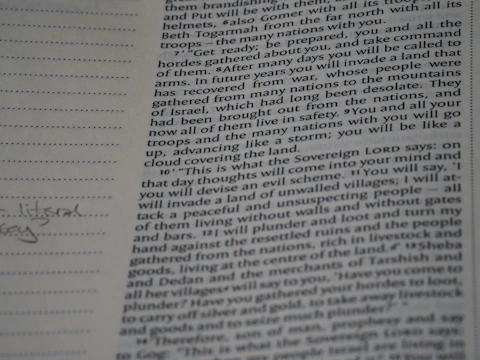 them brandishing
and Put will be with them, all with
helmets, 6also Gomer with all its troops, and
Beth Togarmah from the far north with all its
troops – the many nations with you.
7"'Get ready; be prepared, you and all the
hordes gathered about you, and take command
of them. 8After many days you will be called to
arms. In future years you will invade a land that
has recovered from war, whose people were
gathered from many nations to the mountains
of Israel, which had long been desolate. They
had been brought out from the nations, and
now all of them live in safety. 9You and all your
troops and the many nations with you will go
up, advancing like a storm; you will be like a
cloud covering the land.
10"'This is what the Sovereign LORD says: on
that day thoughts will come into your mind and
you will devise an evil scheme. 11You will say, 'I
will invade a land of unwalled villages; I will at-
tack a peaceful and unsuspecting people – all
of them living without walls and without gates
and bars. 12I will plunder and loot and turn my
hand against the resettled ruins and the people
gathered from the nations, rich in livestock and
goods, living at the centre of the land.' 13Sheba
and Dedan and the merchants of Tarshish and
all her villages will say to you, 'Have you come to
plunder? Have you gathered your hordes to loot,
to carry off silver and gold, to take away livestock
and goods and to seize much plunder?'"
14"Therefore, son of man, prophesy and say
to Gog: 'This is what the Sovereign LORD says:
people Israel are living in
literal